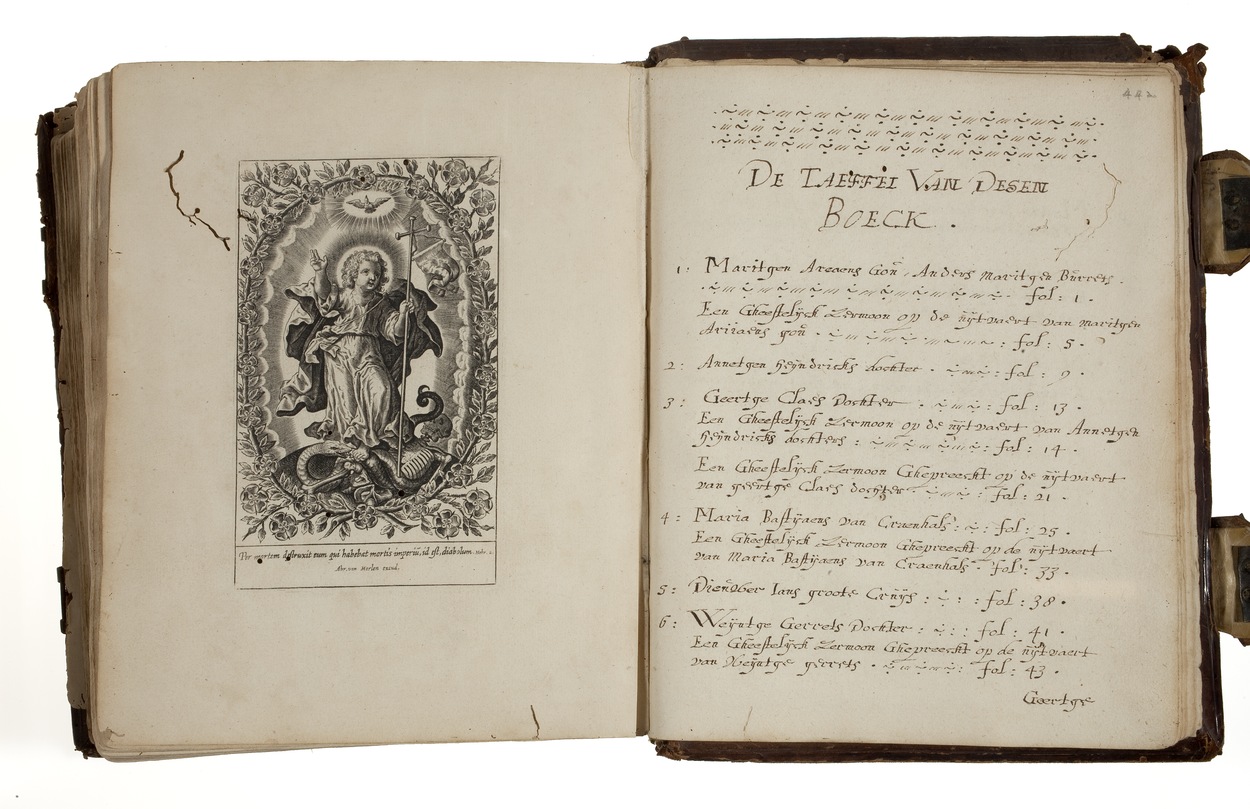 Per mortem destruxit eum qui habebat mortis imperiũ, id est, diabolum. Hebr. 2.
Abr. van Merlen excud.
442
DE TAEFFEL VAN DESEN
BOECK .
1: Maritgen Areaens Gon̄, Anders Maritgen Būrrets.
fol: 1.
Een Gheestelijck Sermoon op de ūijtvaert van maritgen
Ariiaens gon̄ . fol: 5.
2: Annetgen heijndricks dochter . fol: 9.
3: Geertge Claes Dochter . fol: 13.
Een Gheestelijck Sermoon op de ūijtvaert van Annetgen
heijndricks dochters : fol: 14.
Een Gheestelijck Sermoon Ghepreeckt op de ūijtvaert
van geertge Claes dochter fol: 21.
4: Maria Bastijaens van Craenhals : fol: 25.
Een Gheestelijck Sermoon Ghepreeckt op de ūijtvaert
van Maria Bastijaens van Craenhals . fol: 33.
5: Ians groote Crūijs : fol: 38.
6: Weijntge Gerrets Dochter : fol: 41.
Een Gheestelijck Sermoon Ghepreeckt op de ūijtvaert
van Weijntge gerrets . fol: 43.
Geertge